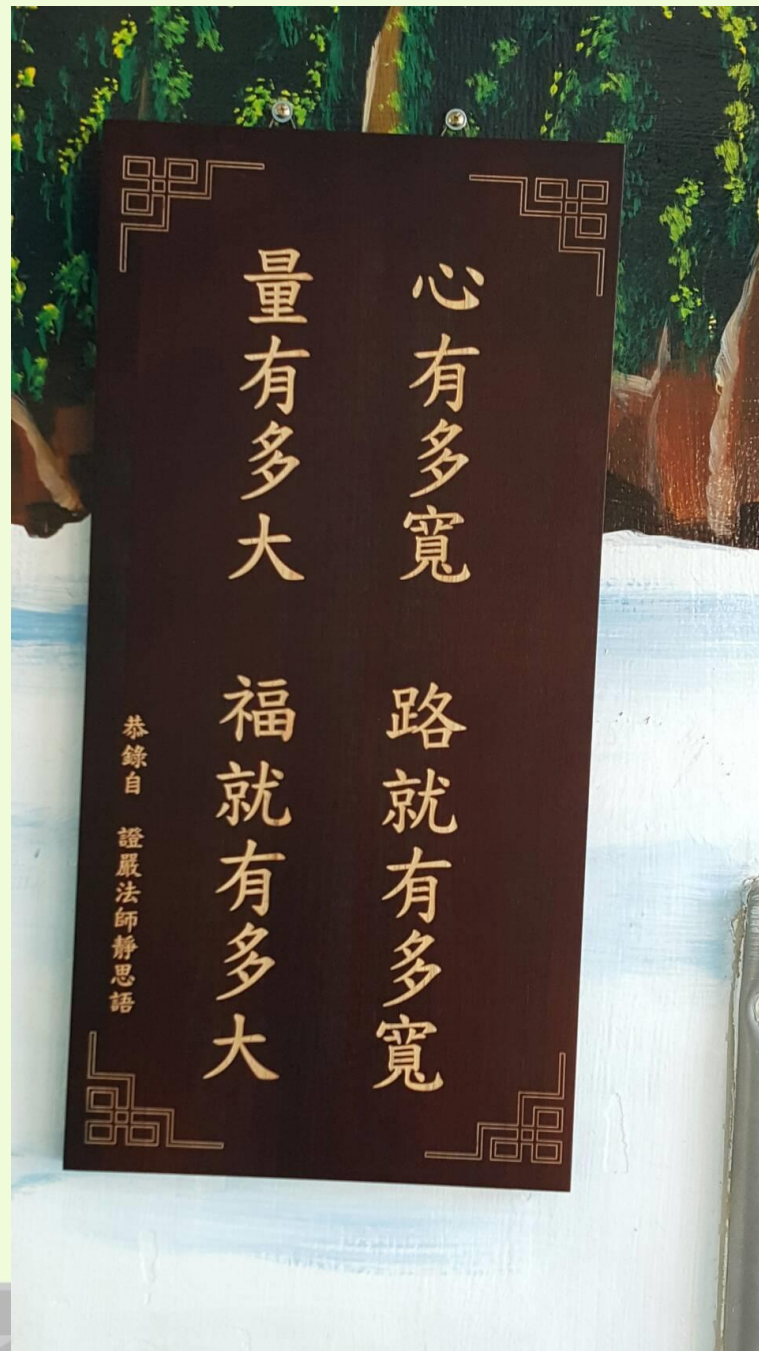 心有多寬　路就有多寬
量有多大　福就有多大
恭錄自　證嚴法師靜思語